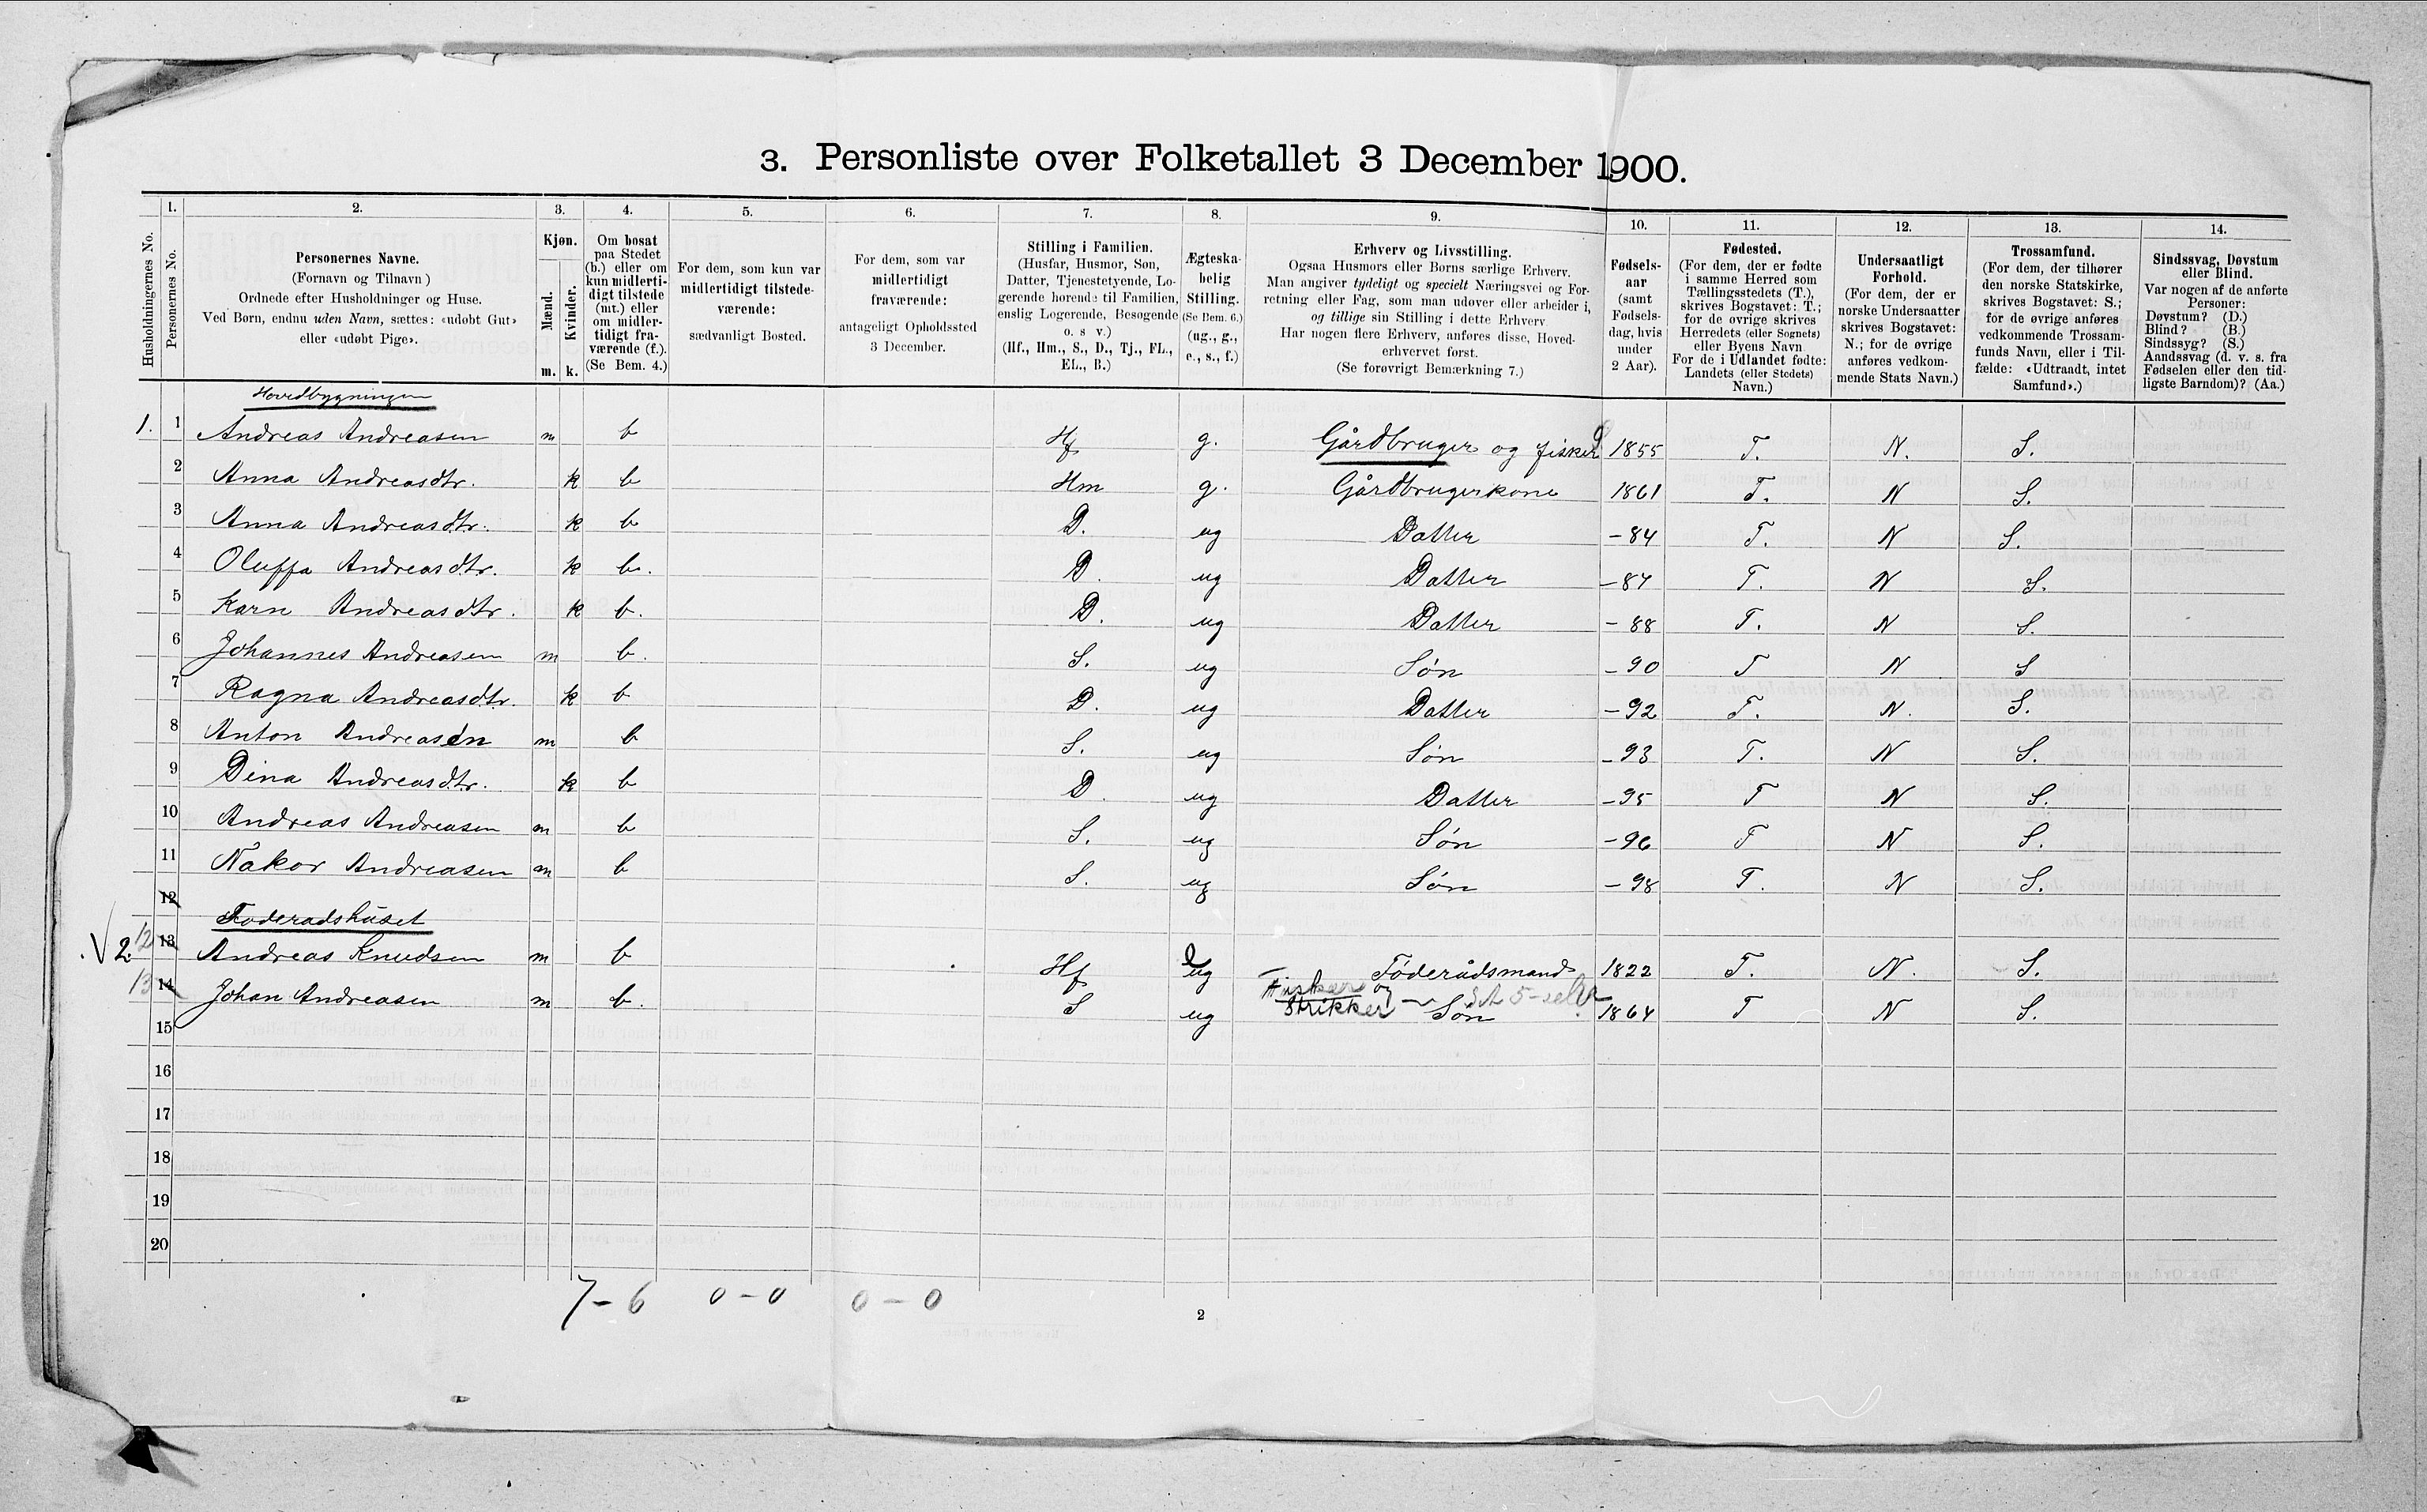 3. Personliste over Folketallet 3 December 1900.
1. 2. 3. 4. 5. 6. 7. 8. 9. 10. 11. 12. 13. 14.
Husholdningernes No.
Personernes No.
Personernes Navne.
(Fornavn og Tilnavn )
Ordnede efter Husholdninger og Huse.
Ved Børn, endnu uden Navn, sættes: «udøbt Gut»
eller «udøbt Pige».
Kjøn.
Mænd.
Kvinder.
m. k.
Om bosat
paa Stedet
(b.) eller om
kun midlerti-
digt tilstede
(mt.) eller
om midler-
tidigt fra-
værende (f.).
(Se Bem. 4.)
For dem, som kun var
midlertidigt tilstede-
værende:
sædvanligt Bosted.
For dem, som var
midlertidigt
fraværende:
antageligt Opholdssted
3 December.
Stilling i Familien.
(Husfar, Husmor, Søn,
Datter, Tjenestetyende, Lo-
gerende hørende til Familien,
enslig Logerende, Besøgende
o. s v.)
(Hf., Hm., S., D., Tj., FL.,
EL., B.)
Ægteska-
belig
Stilling.
(Se Bem. 6.)
(ug., g.,
e., s., f.)
Erhverv og Livsstilling.
Ogsaa Husmors eller Børns særlige Erhverv.
Man angiver tydeligt og specielt Næringsvei og For-
retning eller Fag, som man udøver eller arbeider i,
og tillige sin Stilling i dette Erhverv
Har nogen flere Erhverv, anføres disse, Hoved-
erhvervet først.
(Se forøvrigt Bemærkning 7.)
Fødsels-
aar
(samt
Fødsels-
dag, hvis
under
2 Aar).
Fødested.
(For dem, der er fødte
i samme Herred som
Tællingsstedets (T.),
skrives Bogstavet: T.;
for de øvrige skrives
Herredets (eller Sognets)
eller Byens Navn
For de i Udlandet fødte:
Landets (eller Stedets)
Navn.)
Undersaatligt
Forhold.
(For dem, der er
norske Undersaatter
skrives Bogstavet:
N.; for de øvrige
anføres vedkom-
mende Stats Navn.)
Trossamfund.
(For dem, der tilhører
den norske Statskirke,
skrives Bogstavet: S.;
for de øvrige anføres
vedkommende Trossam-
funds Navn, eller i Til-
fælde: «Udtraadt, intet
Samfund».)
Sindssvag, Døvstum
eller Blind.
Var nogen af de anførte
Personer:
Døvstum? (D.)
Blind? (B.)
Sindssyg? (S.)
Aandssvag (d. v. s. fra
Fødselen eller den tid-
ligste Barndom)? (Aa.)
Hovedbygningen
1. 1 Andreas Andreasen m b Hf g. Gårdbruger og fisker 1855 T. N. S.
2 Anna Andreasdtr. k b Hm g. Gårdbrugerkone 1861 T. N S.
3 Anna Andreasdtr. k b D. ug Datter -84 T. N S.
4 Oluffa Andreasdtr. k b. D. ug Datter -87 T. N S.
5 Karn Andreasdtr. k b. D. ug Datter -88 T. N S.
6 Johannes Andreasen m b. S. ug Søn -90 T N S
7 Ragna Andreasdtr. k b D. ug Datter -92 T. N. S.
8 Anton Andreasen m b S. ug Søn -93 T. N S.
9 Dina Andreasdtr. k b D. ug Datter -95 T N S.
10 Andreas Andreasen m b S. ug Søn -96 T N S.
11 Nakor Andreasen m b S. ug Søn -98 T. N S.
12
Føderadshuset
2. 12 13 Andreas Knudsen m b Hf ug Føderådsmand 1822 T. N. S.
13 14 Johan Andreasen m b. S ug Fisker og Strikker - Søn 1864 T N S.
15
16
17
18
19
20
7-6 0-0 0-0
2